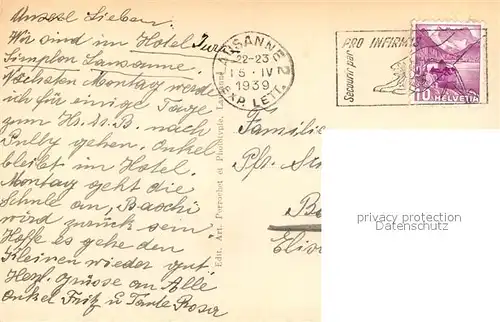 Unsere Lieben.
Wir sind im Hotel
Simplon Lausanne.
Nächsten Montag werde
ich für einige Tage
zum Hs. v. B. nach
Pully gehen. Onkel
bleibt im Hotel.
Montag geht die
Schule an, Baschi
wird zurück sein.
Hoffe es gehe den
Kleinen wieder gut.
Herzl. Grüsse an Alle
Onkel Fritz u Tante Rosa
LAUSANNE 2
22-23
15. IV
1939
EXP. LETT.
PRO INFIRMIS
Secourir par
10 HELVETIA
Edit. Art. Perrochet et Phototypie, Lausanne
Familie
Pfr.
privacy protection
www.oldthing.de